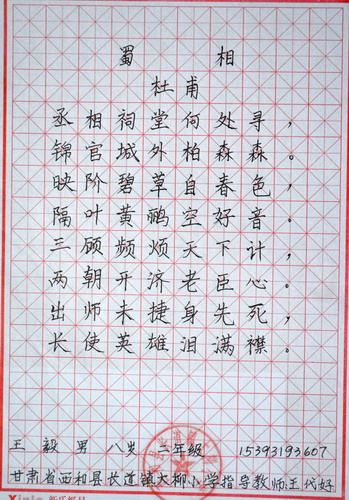 蜀相
杜甫
丞相祠堂何处寻，
锦官城外柏森森。
映阶碧草自春色，
隔叶黄鹂空好音。
三顾频烦天下计，
两朝开济老臣心。
出师未捷身先死，
长使英雄泪满襟。
王毅 男 八岁 二年级 15393193607
甘肃省西和县长道镇大柳小学指导教师王代好